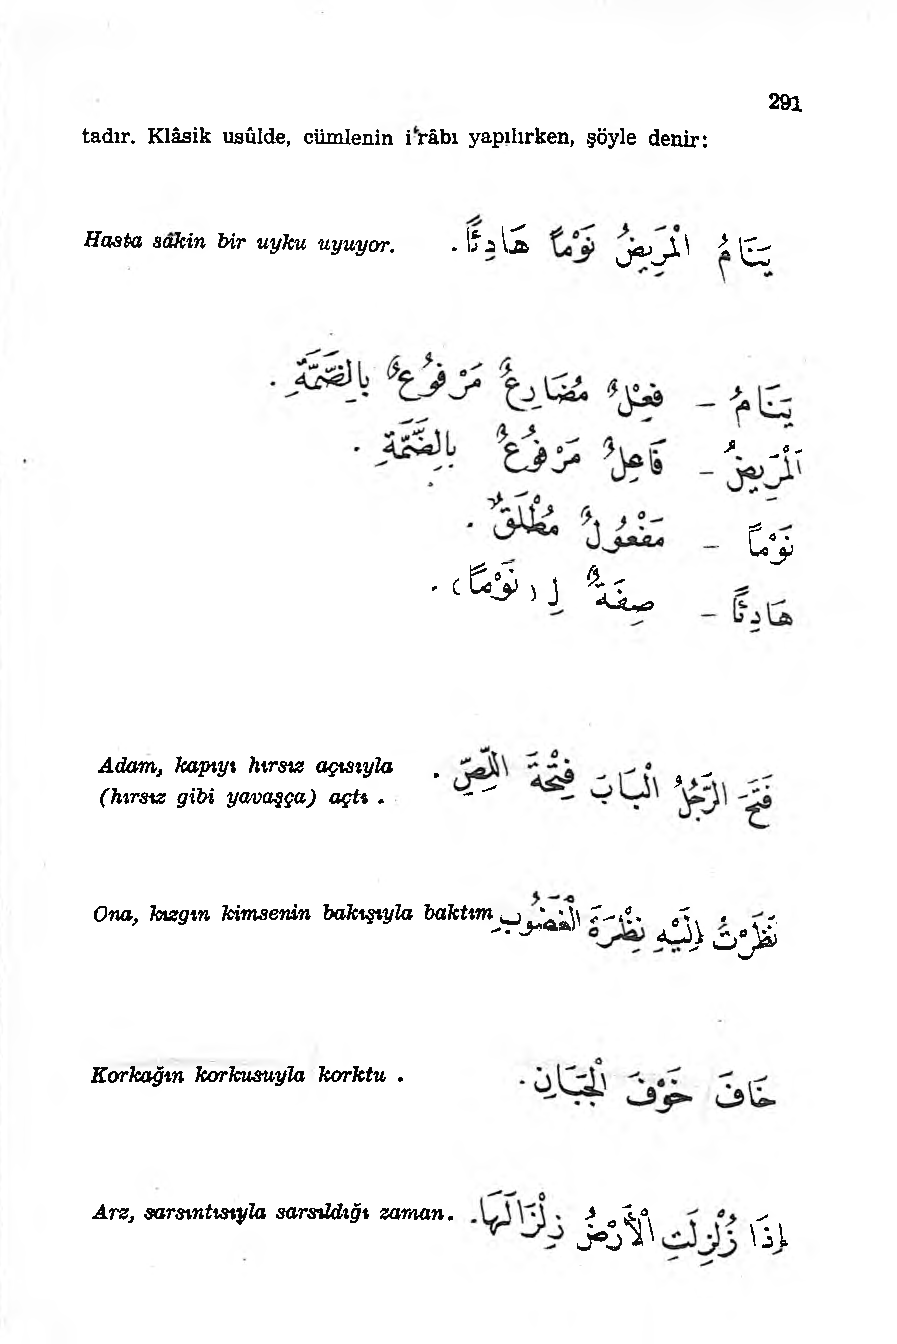 291
tadır. Klâsik usûlde, cümlenin i'râbı yapılırken, şöyle denir:
Hasta sâkin bir uyku uyuyor. يَنَامُ الْمَرِيضُ نَوْمًا هَادِئًا .
يَنَامُ – فِعْلٌ مُضَارِعٌ مَرْفُوعٌ بِالضَّمَّةِ .
اَلْمَرِيضُ – فَاعِلٌ مَرْفُوعٌ بِالضَّمَّةِ .
نَوْمًا – مَفْعُولٌ مُطْلَقٌ .
هَادِئًا – صِفَةٌ لِ ( نَوْمًا ) .
Adam, kapıyı hırsız açısıyla فَتَحَ الرَّجُلُ الْبَابَ فَتْحَةَ اللِّصِّ .
(hırsız gibi yavaşça) açtı .
Ona, kızgın kimsenin bakışıyla baktım نَظَرْتُ إِلَيْهِ نَظْرَةَ الْغَضُوبِ
Korkağın korkusuyla korktu . خَافَ خَوْفَ الْجَبَانِ .
Arz, sarsıntısıyla sarsıldığı zaman. إِذَا زُلْزِلَتِ الْأَرْضُ زِلْزَالَهَا .